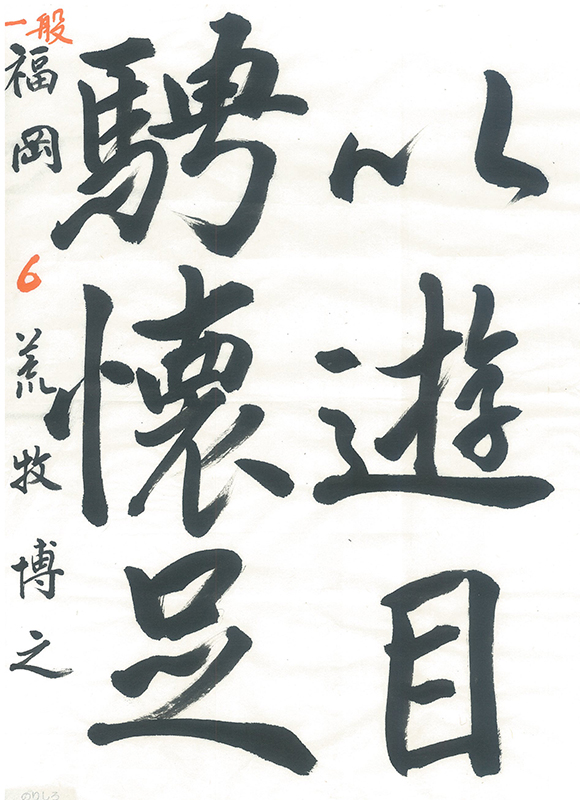 以遊目
騁懐足
一般
福岡 6 荒牧博之
のりしろ